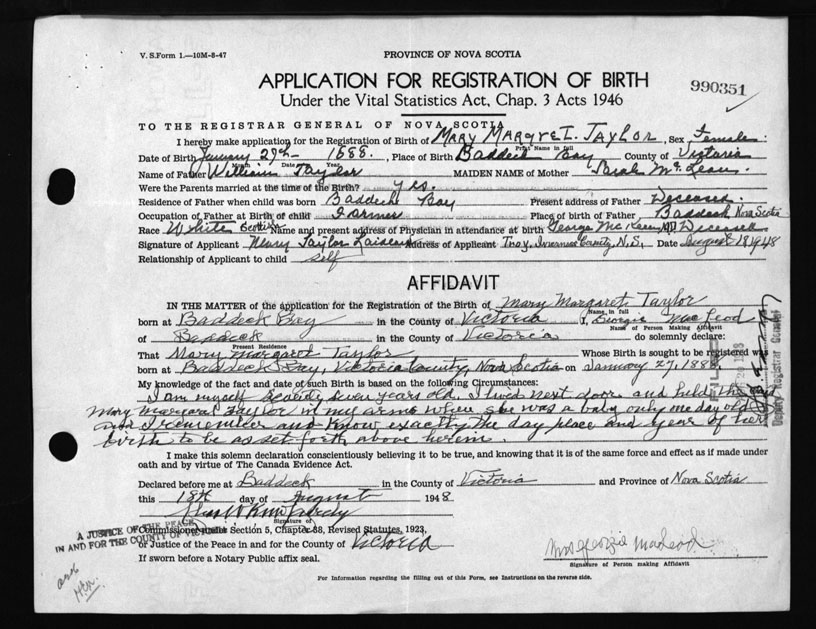 V. S. Form 1.—10M-8-47
PROVINCE OF NOVA SCOTIA
APPLICATION FOR REGISTRATION OF BIRTH
990351
Under the Vital Statistics Act, Chap. 3 Acts 1946
TO THE REGISTRAR GENERAL OF NOVA SCOTIA
I hereby make application for the Registration of Birth of Mary Margret Taylor, Sex Female
Print Name in full
Date of Birth January 27th 1888. , Place of Birth Baddeck Bay County of Victoria
Month Date Year
Name of Father William Taylor MAIDEN NAME of Mother Sarah McLean.
Were the Parents married at the time of the Birth? yes.
Residence of Father when child was born Baddeck Bay Present address of Father Deceased
Occupation of Father at Birth of child Farmer Place of birth of Father, Baddeck Nova Scotia
Race White Scottish Name and present address of Physician in attendance at birth George McKeen MD Deceased
Signature of Applicant Mary Taylor Address of Applicant Troy, Inverness County, N.S. Date August 18 1948
Relationship of Applicant to child self
AFFIDAVIT
IN THE MATTER of the application for the Registration of the Birth of Mary Margaret Taylor
Name in full
born at Baddeck Bay in the County of Victoria I, Georgie MacLeod
Name of Person Making Affidavit
of Baddeck in the County of Victoria do solemnly declare:
Present Residence
That Mary Margaret Taylor Whose Birth is sought to be registered was
born at Baddeck Bay, Victoria County, Nova Scotia on January 27, 1888
My knowledge of the fact and date of such Birth is based on the following Circumstances:
I am myself seventy seven years old. I lived next door and held the
Mary Margaret Taylor in my arms when she was a baby only one day old
and I remember and know exactly the day place and year of her
birth to be as set forth above herein.
FILED
Deputy Registrar General
I make this solemn declaration conscientiously believing it to be true, and knowing that it is of the same force and effect as if made under
oath and by virtue of The Canada Evidence Act.
Declared before me at Baddeck in the County of Victoria and Province of Nova Scotia
this 18th day of August 1948
Signature of
Commissioner under Section 5, Chapter 38, Revised Statutes, 1923,
or Justice of the Peace in and for the County of Victoria
A JUSTICE OF THE PEACE
IN AND FOR THE COUNTY OF VICTORIA
Mrs Georgie MacLeod
Signature of Person making Affidavit
If sworn before a Notary Public affix seal.
For Information regarding the filling out of this Form, see Instructions on the reverse side.